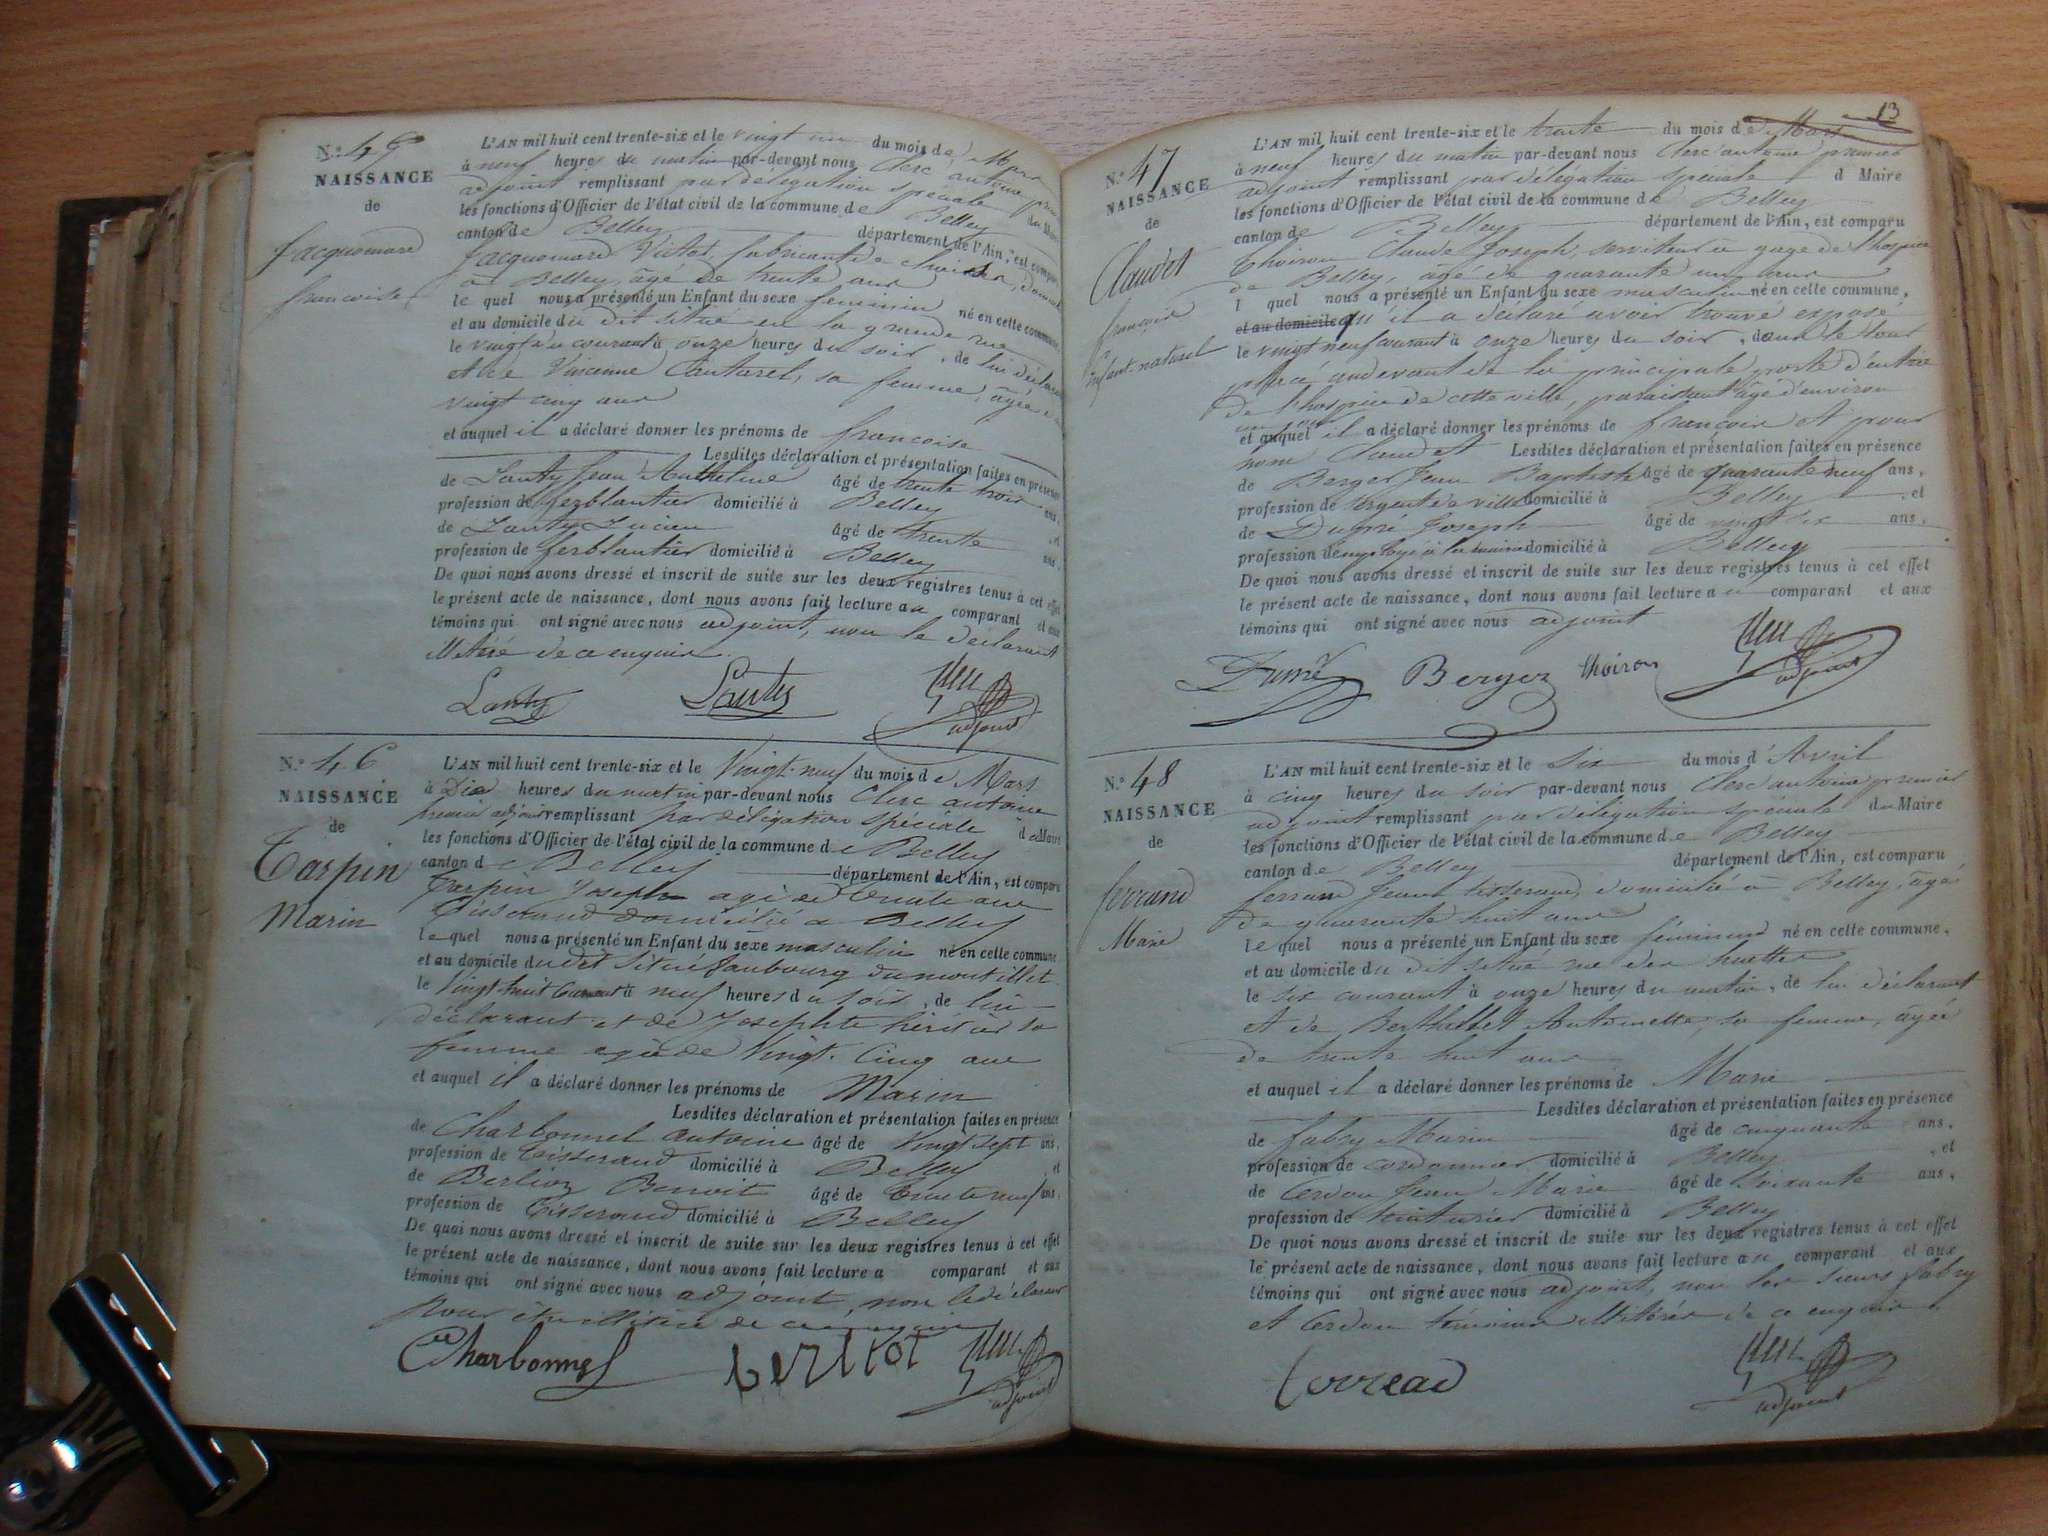 N.º 45
NAISSANCE
de
Jacquemard
françoise
L'AN mil huit cent trente-six et le vingt du mois de Mars
à neuf heures du matin par-devant nous Clerc antoine
adjoint remplissant par délégation spéciale du Maire
les fonctions d'Officier de l'état civil de la commune de Belley
canton de Belley département de l'Ain, est comparu
Jacquemard Victor, fabricant de
à Belley, âgé de trente ans
le quel nous a présenté un Enfant du sexe feminin né en cette commune
et au domicile du dit situé en la grande rue
le courant à onze heures du soir, de lui déclarant
et de Vivienne Cantarel, sa femme, âgée de
vingt cinq ans
et auquel il a déclaré donner les prénoms de francoise
Lesdites déclaration et présentation faites en présence
de Lanty Jean Anthelme âgé de trente trois ans,
profession de ferblantier domicilié à Belley et
de Lanty Lucien âgé de trente ans,
profession de ferblantier domicilié à Belley
De quoi nous avons dressé et inscrit de suite sur les deux registres tenus à cet effet
le présent acte de naissance, dont nous avons fait lecture au comparant et aux
témoins qui ont signé avec nous adjoint, non le déclarant
illitéré de ce enquis.
Lanty Lanty adjoint
N.º 46
NAISSANCE
de
Tarpin
Marin
L'AN mil huit cent trente-six et le Vingt-neuf du mois de Mars
à Dix heures du matin par-devant nous Clerc antoine
premier adjoint remplissant par délégation spéciale d Maire
les fonctions d'Officier de l'état civil de la commune de Belley
canton de Belley département de l'Ain, est comparu
Tarpin Joseph agé de trente ans
Tisserand domicilié a Belley
le quel nous a présenté un Enfant du sexe masculin né en cette commune
et au domicile dudit situé faubourg du montillet
le Vingt-huit Courant à neuf heures du soir, de lui
déclarant et de Josephte héritier sa
femme agée de Vingt-Cinq ans
et auquel il a déclaré donner les prénoms de Marin
Lesdites déclaration et présentation faites en présence
de Charbonnel antoine âgé de Vingt sept ans,
profession de Tisserand domicilié à Belley et
de Berlioz Benoit âgé de Trente neuf ans,
profession de Tisserand domicilié à Belley
De quoi nous avons dressé et inscrit de suite sur les deux registres tenus à cet effet
le présent acte de naissance, dont nous avons fait lecture a comparant et aux
témoins qui ont signé avec nous adjoint, non le déclarant
pour être illitéré de ce enquis
Charbonnel adjoint
13
N.º 47
NAISSANCE
de
Claudet
françois
enfant naturel
L'AN mil huit cent trente-six et le trente du mois de Mars
à neuf heures du matin par-devant nous Clerc antoine premier
adjoint remplissant par délégation speciale d Maire
les fonctions d'Officier de l'état civil de la commune de Belley
canton de Belley département de l'Ain, est comparu
Thoiron Claude Joseph, serviteur à gage de l'hospice
de Belley, âgé de quarante un ans
l quel nous a présenté un Enfant du sexe masculin né en cette commune,
et au domicile qu'il a déclaré avoir trouvé exposé
le vingt neuf courant à onze heures du soir, dans le tour
placé audevant de la principale porte d'entrée
de l'hospice de cette ville, paraissant âgé d'environ
et auquel il a déclaré donner les prénoms de françois et pour
nom Claudet Lesdites déclaration et présentation faites en présence
de Berger Jean Baptiste âgé de quarante neuf ans,
profession de sergent de ville domicilié à Belley et
de Joseph âgé de vingt six ans,
profession d'employé à la mairie domicilié à Belley
De quoi nous avons dressé et inscrit de suite sur les deux registres tenus à cet effet
le présent acte de naissance, dont nous avons fait lecture au comparant et aux
témoins qui ont signé avec nous adjoint
Berger thoiron adjoint
N.º 48
NAISSANCE
de
ferrand
Marie
L'AN mil huit cent trente-six et le six du mois d'Avril
à cinq heures du soir par-devant nous Clerc antoine premier
adjoint remplissant par délégation spéciale du Maire
les fonctions d'Officier de l'état civil de la commune de Belley
canton de Belley département de l'Ain, est comparu
ferrand Jean tisserand, domicilié à Belley, âgé
de quarante huit ans
le quel nous a présenté un Enfant du sexe féminin né en cette commune,
et au domicile du dit situé rue des
le six courant à onze heures du matin, de lui déclarant
et de Berthellet Antoinette, sa femme, âgée
de trente huit ans
et auquel il a déclaré donner les prénoms de Marie
Lesdites déclaration et présentation faites en présence
de fabry Marin âgé de cinquante ans,
profession de cordonnier domicilié à Belley, et
de Cerdon Jean Marie âgé de soixante ans,
profession de teinturier domicilié à Belley
De quoi nous avons dressé et inscrit de suite sur les deux registres tenus à cet effet
le présent acte de naissance, dont nous avons fait lecture au comparant et aux
témoins qui ont signé avec nous adjoint, non les sieurs fabry
et Cerdon témoins illitérés de ce enquis.
adjoint